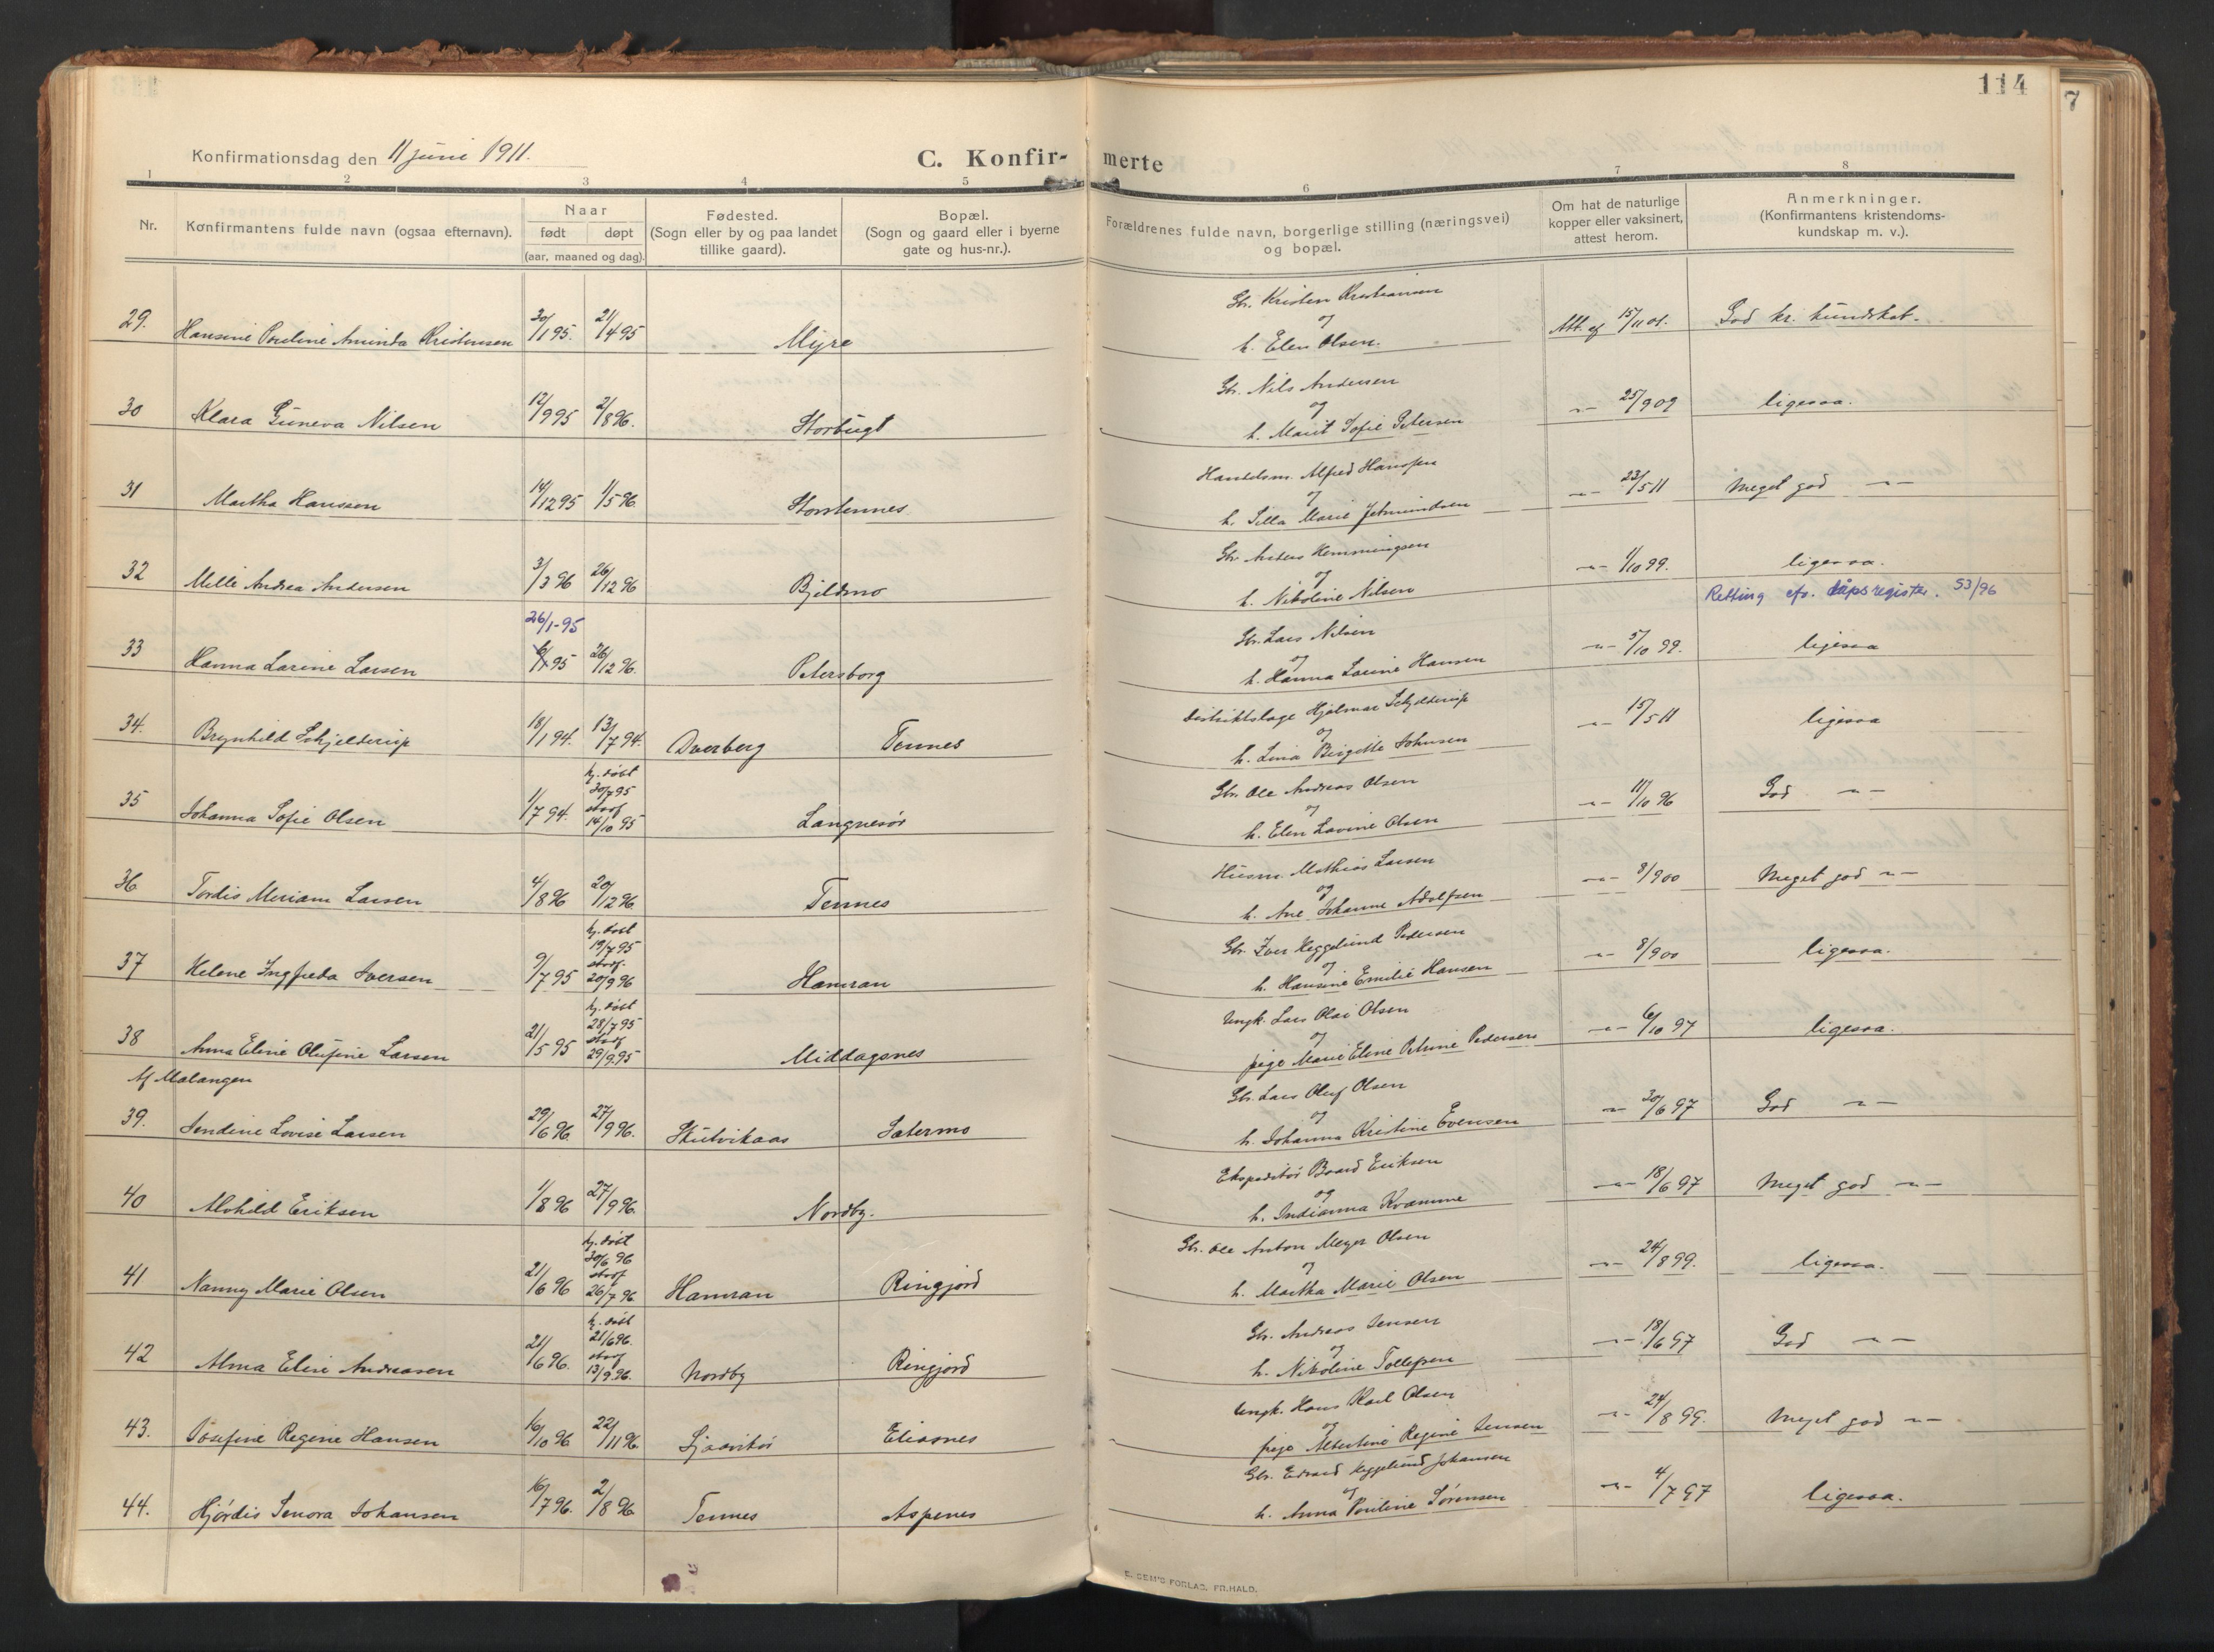 114
7
Konfirmationsdag den 11 juni 1911.
C. Konfir- merte
1 2 3 4 5 6 7 8
Nr.
Konfirmantens fulde navn (ogsaa efternavn).
Naar
født døpt
(aar, maaned og dag).
Fødested.
(Sogn eller by og paa landet
tillike gaard).
Bopæl.
(Sogn og gaard eller i byerne
gate og hus-nr.).
Forældrenes fulde navn, borgerlige stilling (næringsvei)
og bopæl.
Om hat de naturlige
kopper eller vaksinert,
attest herom.
Anmerkninger.
(Konfirmantens kristendoms-
kundskap m. v.).
29. Hansine Pauline Aminda Kristensen 30/1 95. 21/4 95 Myre
Gbr. Kristen Kristiansen
og
h. Elen Olsen.
Att. af 15/11 01. God kr. kundskab.
30 Klara Guneva Nilsen 12/9 95 2/8 96. Storbugt
Gbr. Nils Andersen
og
h. Marit Sofie Petersen
-"- 25/9 09 ligesaa.
31 Martha Hanssen 14/12 95 1/5 96. Storstennes
Handelsm. Alfred Hanssen
og
h. Silla Marie Jetmundsen
-"- 23/5 11 Meget god -"-
32 Milli Andrea Andersen 3/3 96 26/12 96 Bjeldmo
Gbr. Anders Hemmingsen
og
h. Nikoline Nilsen
-"- 1/10 99. ligesaa.
Retting efr. dåpsregister. 53/96
26/1-95
33 Hanna Larine Larsen 6/1 95 26/12 96. Petersborg
Gbr. Lars Nilsen
og
h. Hanna Larine Hansen
-"- 5/10 99. ligesaa
34. Brynhild Schjelderup 18/1 94. 13/7 94. Dverberg Tennes
Distriktslæge Hjalmar Schjelderup
og
h. Lina Birgitte Johnsen
-"- 15/5 11 ligesaa
35 Johanna Sofie Olsen 1/7 94. hj. døbt 30/7 95 stadf 14/10 95 Langnesør
Gbr. Ole Andreas Olsen
og
h. Elen Lovine Olsen
-"- 11/10 96 God -"-
36 Tordis Meriam Larsen 4/8 96 20/12 96 Tennes
Husm. Mathias Larsen
og
h. Ane Johanne Adolfsen
-"- 8/9 00 Meget god -"-
37 Helene Ingfreda Iversen 9/7 95 hj. døbt 19/7 95 stadf. 20/9 96 Hamran
Gbr. Iver Heggelund Pedersen
og
h. Hansine Emilie Hansen
-"- 8/9 00 ligesaa.
38 Anna Eline Olufine Larsen 21/5 95 hj. døbt 28/7 95 stadf 29/9 95 Middagsnes
Ungk. Lars Olai Olsen
og
pige Marie Eline Petrine Pedersen
-"- 6/10 97 ligesaa.
Af Malangen
39. Jendine Lovise Larsen 29/6 96. 27/9 96. Skutvikaas Sætermo
Gbr. Lars Oluf Olsen
og
h. Johanna Kristine Evensen
-"- 30/6 97 God -"-
40 Alvhild Eriksen 1/8 96 27/9 96. Nordby.
Ekspeditør Baard Eriksen
og
h. Indianna Kvamme
-"- 18/6 97 Meget god -"-
41 Nanny Marie Olsen 21/6 96 hj. døbt 30/6 96 stadf 26/7 96. Hamran Ringjord
Gbr. Ole Anton Meyer Olsen
og
h. Martha Marie Olsen
-"- 24/8 99. ligesaa.
42 Alma Eline Andreasen 21/6 96. hj. døbt 21/6 96. stadf 13/9 96. Nordby Ringjord
Gbr. Andreas Jensen
og
h. Nikoline Tollefsen
-"- 18/6 97 God -"-
43. Josefine Regine Hansen 16/10 96 22/11 96. Sjaavikør Eliasnes
Ungk. Hans Karl Olsen
og
pige Albertine Regine Jensen
-"- 24/8 99. Meget god -"-
44. Hjördis Senora Johansen 16/7 96. 2/8 96 Tennes Aspenes
Gbr. Edvard Heggelund Johansen
og
h. Anna Pauline Sørensen
-"- 4/7 97 ligesaa.
E. SEM'S FORLAG. FR.HALD.